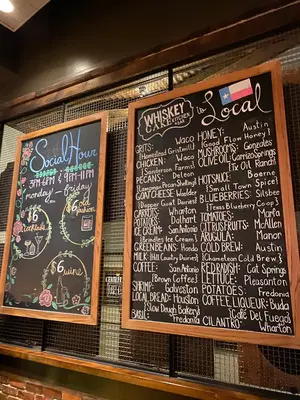 Social Hour
3PM-6PM
& 9PM-11PM
monday - friday
$6
cocktails
$6
old fashion
$6
wine
WHISKEY
CAKE
KITCHEN
Local
GRITS: Waco
{Homestead Gristmill}
CHICKEN: Waco
{Sanderson Farms}
PECANS: Denton
GOAT CHEESE: Waco
CARROTS:
POTATOES: Dalhart
ICE CREAM: San Antonio
{Brindles Ice Cream}
GREENBEANS: Hondo
MILK: {Hill Country Dairies}
COFFEE: San Antonio
{Brown Coffee}
SHRIMP: Galveston
LOCAL BREAD: Houston
{Slow Dough Bakery}
BASIL: Fredonia
HONEY: Austin
{Good Flow Honey}
MUSHROOMS: Gonzales
OLIVE OIL: Carrizo Springs
{TX Olive Oil}
HOTSAUCE: Boerne
{Small Town Spice}
BLUEBERRIES: Silsbee
{Texas Blueberry Coop}
TOMATOES: Marfa
CITRUS FRUITS: McAllen
ARUGULA: Manor
COLD BREW: Austin
{Chameleon Cold Brew}
RED RADISH: Cat Springs
LETTUCE: Pleasanton
POTATOES: Fredonia
COFFEE LIQUEUR: Buda
{Café Del Fuego}
CILANTRO: Wharton